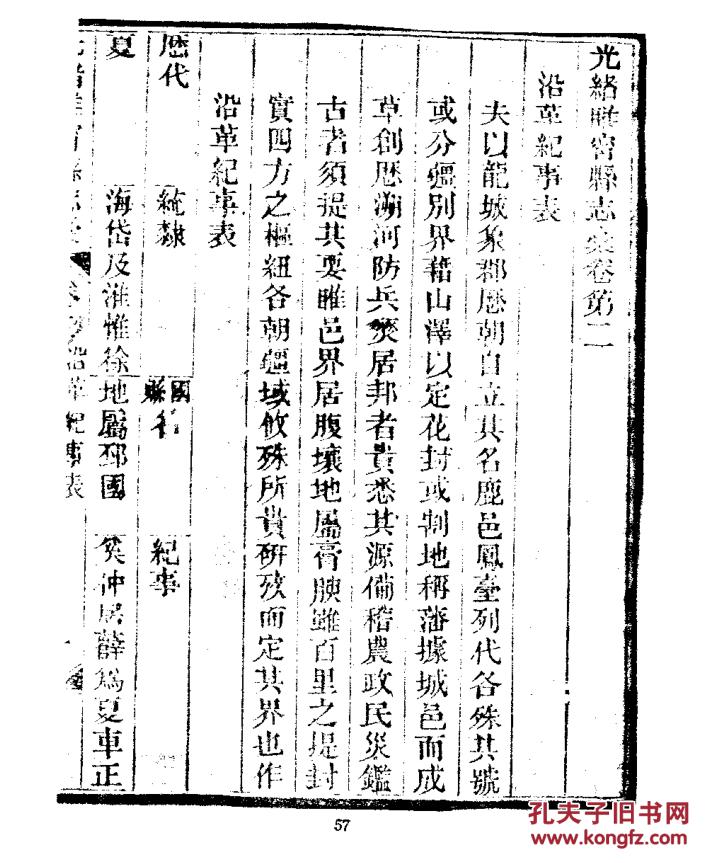 光緒睢寧縣志稾卷第二
沿革紀事表
夫以龍城象郡歷朝自立其名鹿邑鳳臺列代各殊其號
或分疆別界藉山澤以定花封或制地稱藩據城邑而成
草創歷溯河防兵燹居邦者貴悉其源備稽農政民災鑑
古者須提其要睢邑界居腹壤地屬膏腴雖百里之提封
實四方之樞紐各朝疆域攸殊所貴研攷而定其界也作
沿革紀事表
歷代 統隸 國縣名 紀事
夏 海岱及淮惟徐地屬邳國 奚仲居薛爲夏車正
沿革紀事表
57
孔夫子旧书网
www.kongfz.com